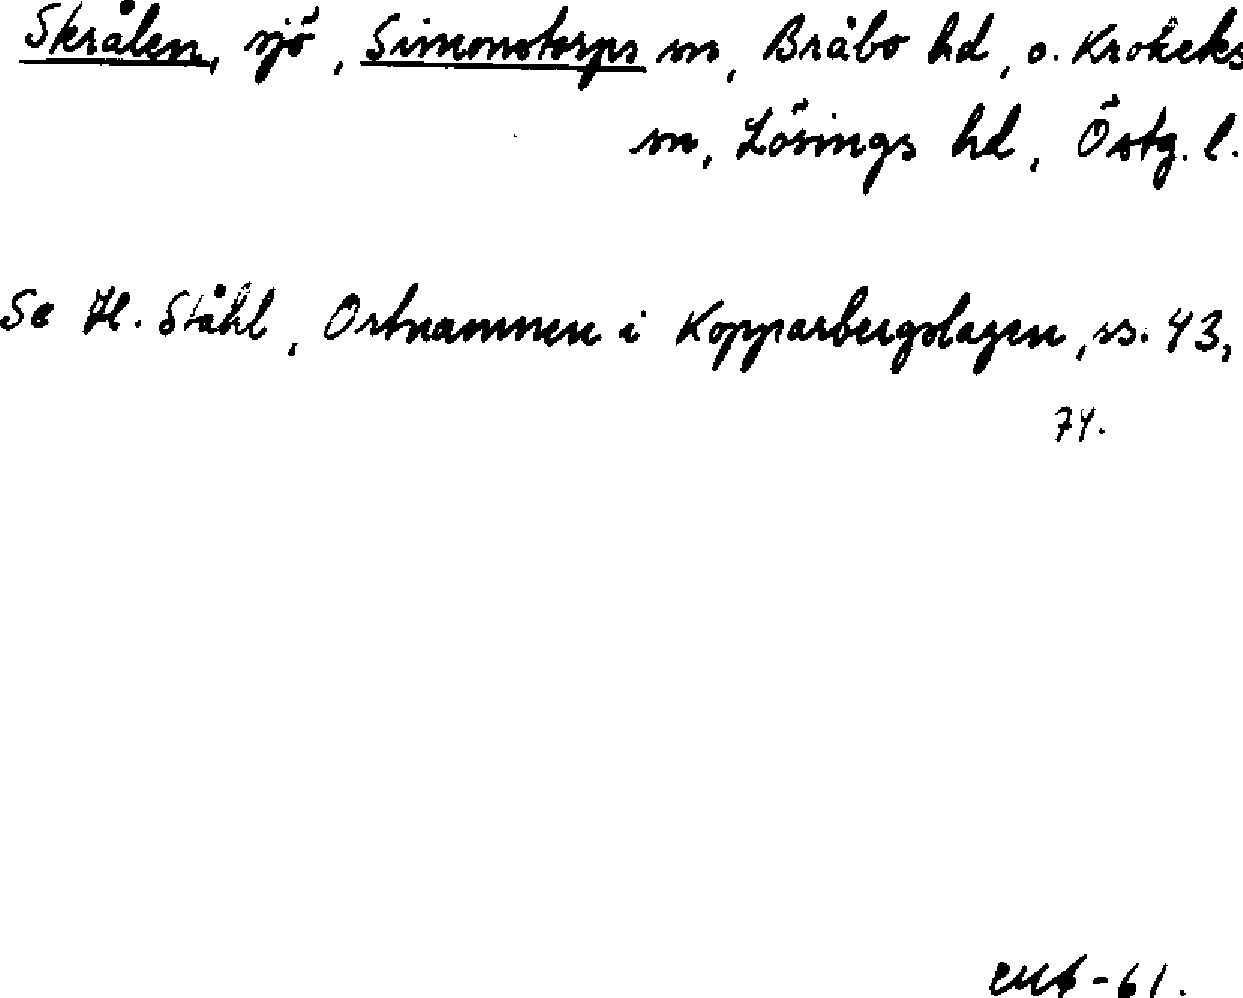 Skrålen, sjö, Simonstorps sn, Bråbo hd, o. Krokeks
sn, Lösings hd, Östg. l.
Se H. Ståhl, Ortnamnen i Kopparbergslagen, ss. 43,
74.
-61.